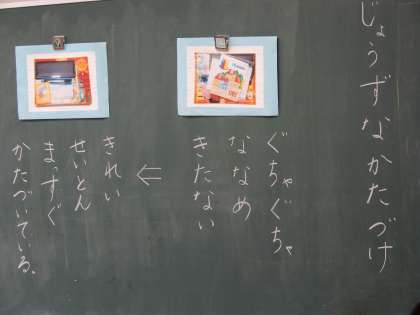 じょうずなかたづけ
ぐちゃぐちゃ
ななめ
きたない
⇐
きれい
せいとん
まっすぐ
かたづいている。